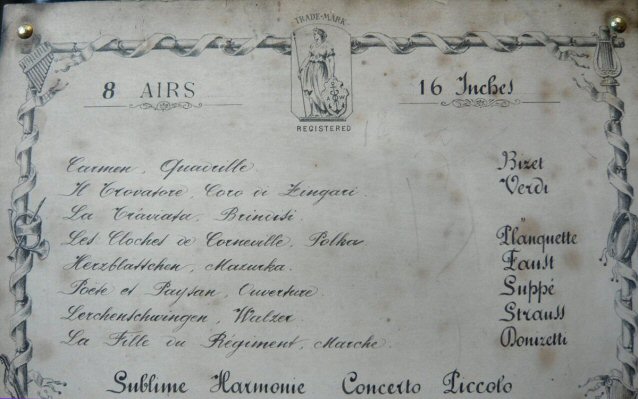 TRADE-MARK
8 AIRS
16 Inches
REGISTERED
Carmen, Quadrille Bizet
Il Trovatore, Coro di Zingari Verdi
La Traviata, Brindisi.
Les Cloches de Corneville, Polka Planquette
Herzblättchen, Mazurka. Faust
Poete et Paysan, Ouverture Suppé
Lerchenschwingen, Walzer. Strauss
La Fille du Régiment, Marche. Donizetti
Sublime Harmonie Concerto Piccolo